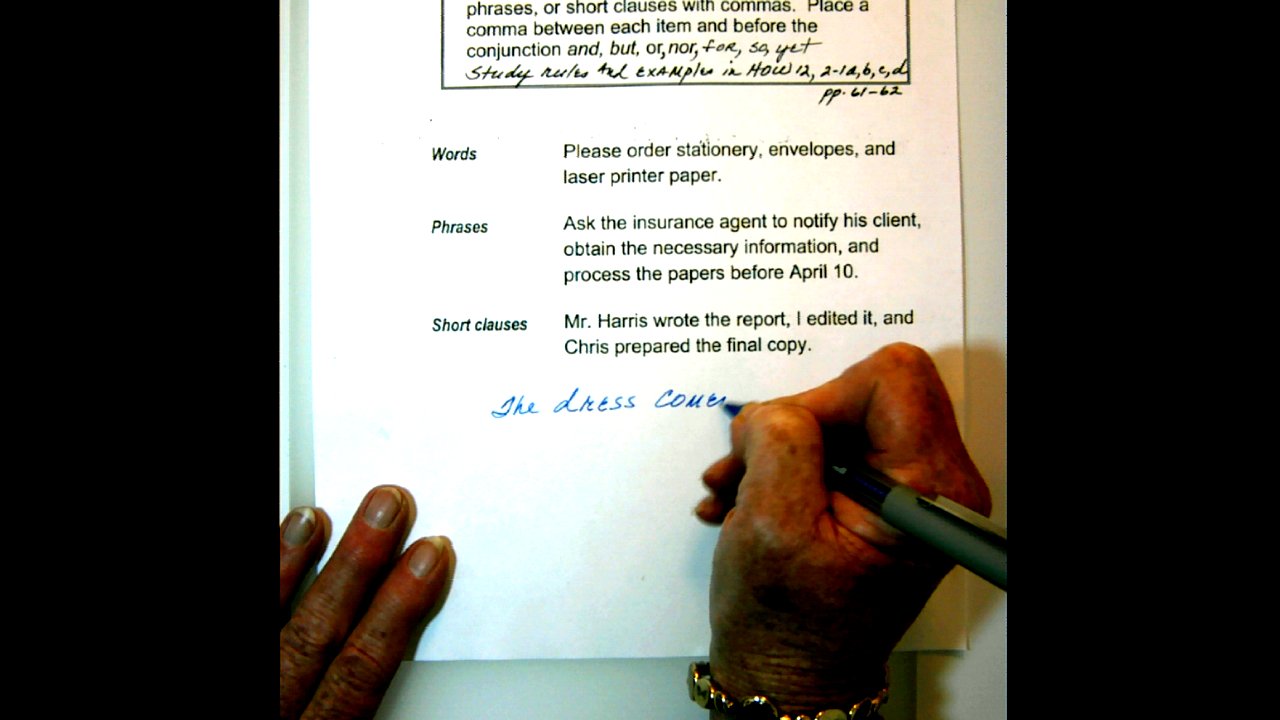 phrases, or short clauses with commas. Place a
comma between each item and before the
conjunction and, but, or, nor, for, so, yet
Study rules and examples in HOW 12, 2-1a,b,c,d
pp. 61-62
Words
Please order stationery, envelopes, and
laser printer paper.
Phrases
Ask the insurance agent to notify his client,
obtain the necessary information, and
process the papers before April 10.
Short clauses
Mr. Harris wrote the report, I edited it, and
Chris prepared the final copy.
The dress come